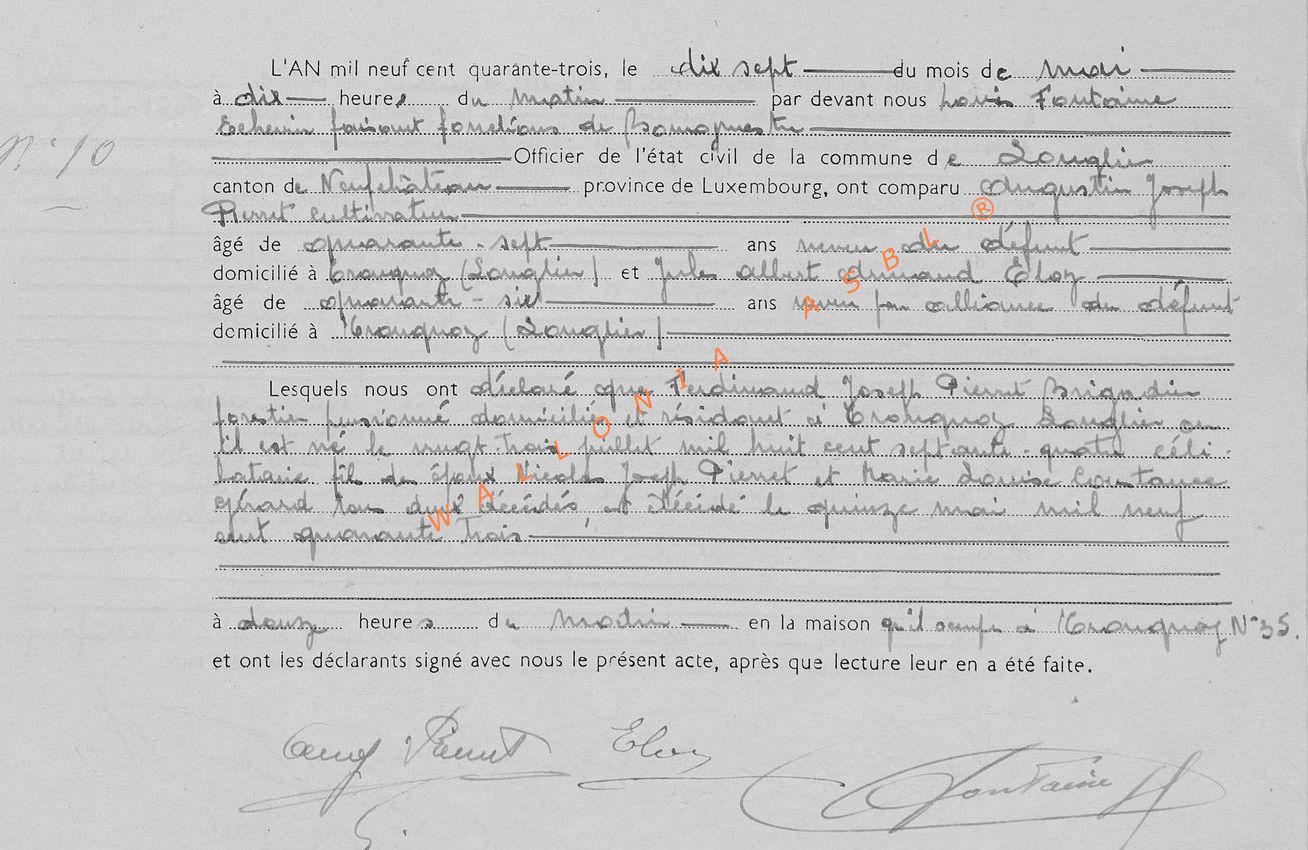 L'AN mil neuf cent quarante-trois, le dix sept du mois de mai
à dix heures du matin par devant nous Louis Fontaine
Echevin faisant fonctions de Bourgmestre
N° 10
Officier de l'état civil de la commune de Longlier
canton de Neufchâteau province de Luxembourg, ont comparu Augustin Joseph
Pierret cultivateur
âgé de quarante-sept ans neveu du défunt
domicilié à Tronquoy (Longlier) et Jules Albert Armand Eloy
âgé de quarante-six ans neveu par alliance du défunt
domicilié à Tronquoy (Longlier)
Lesquels nous ont déclaré que Ferdinand Joseph Pierret Brigadier
forestier pensionné domicilié et résidant à Tronquoy Longlier où
il est né le vingt trois juillet mil huit cent septante-quatre céli-
bataire fils des époux Nicolas Joseph Pierret et Marie Louise Constance
Gérard tous deux décédés, est décédé le quinze mai mil neuf
cent quarante trois
à douze heures du matin en la maison qu'il occupe à Tronquoy N° 35.
et ont les déclarants signé avec nous le présent acte, après que lecture leur en a été faite.
Aug Pierret Eloy Fontaine
WALLONIA ASBL ®